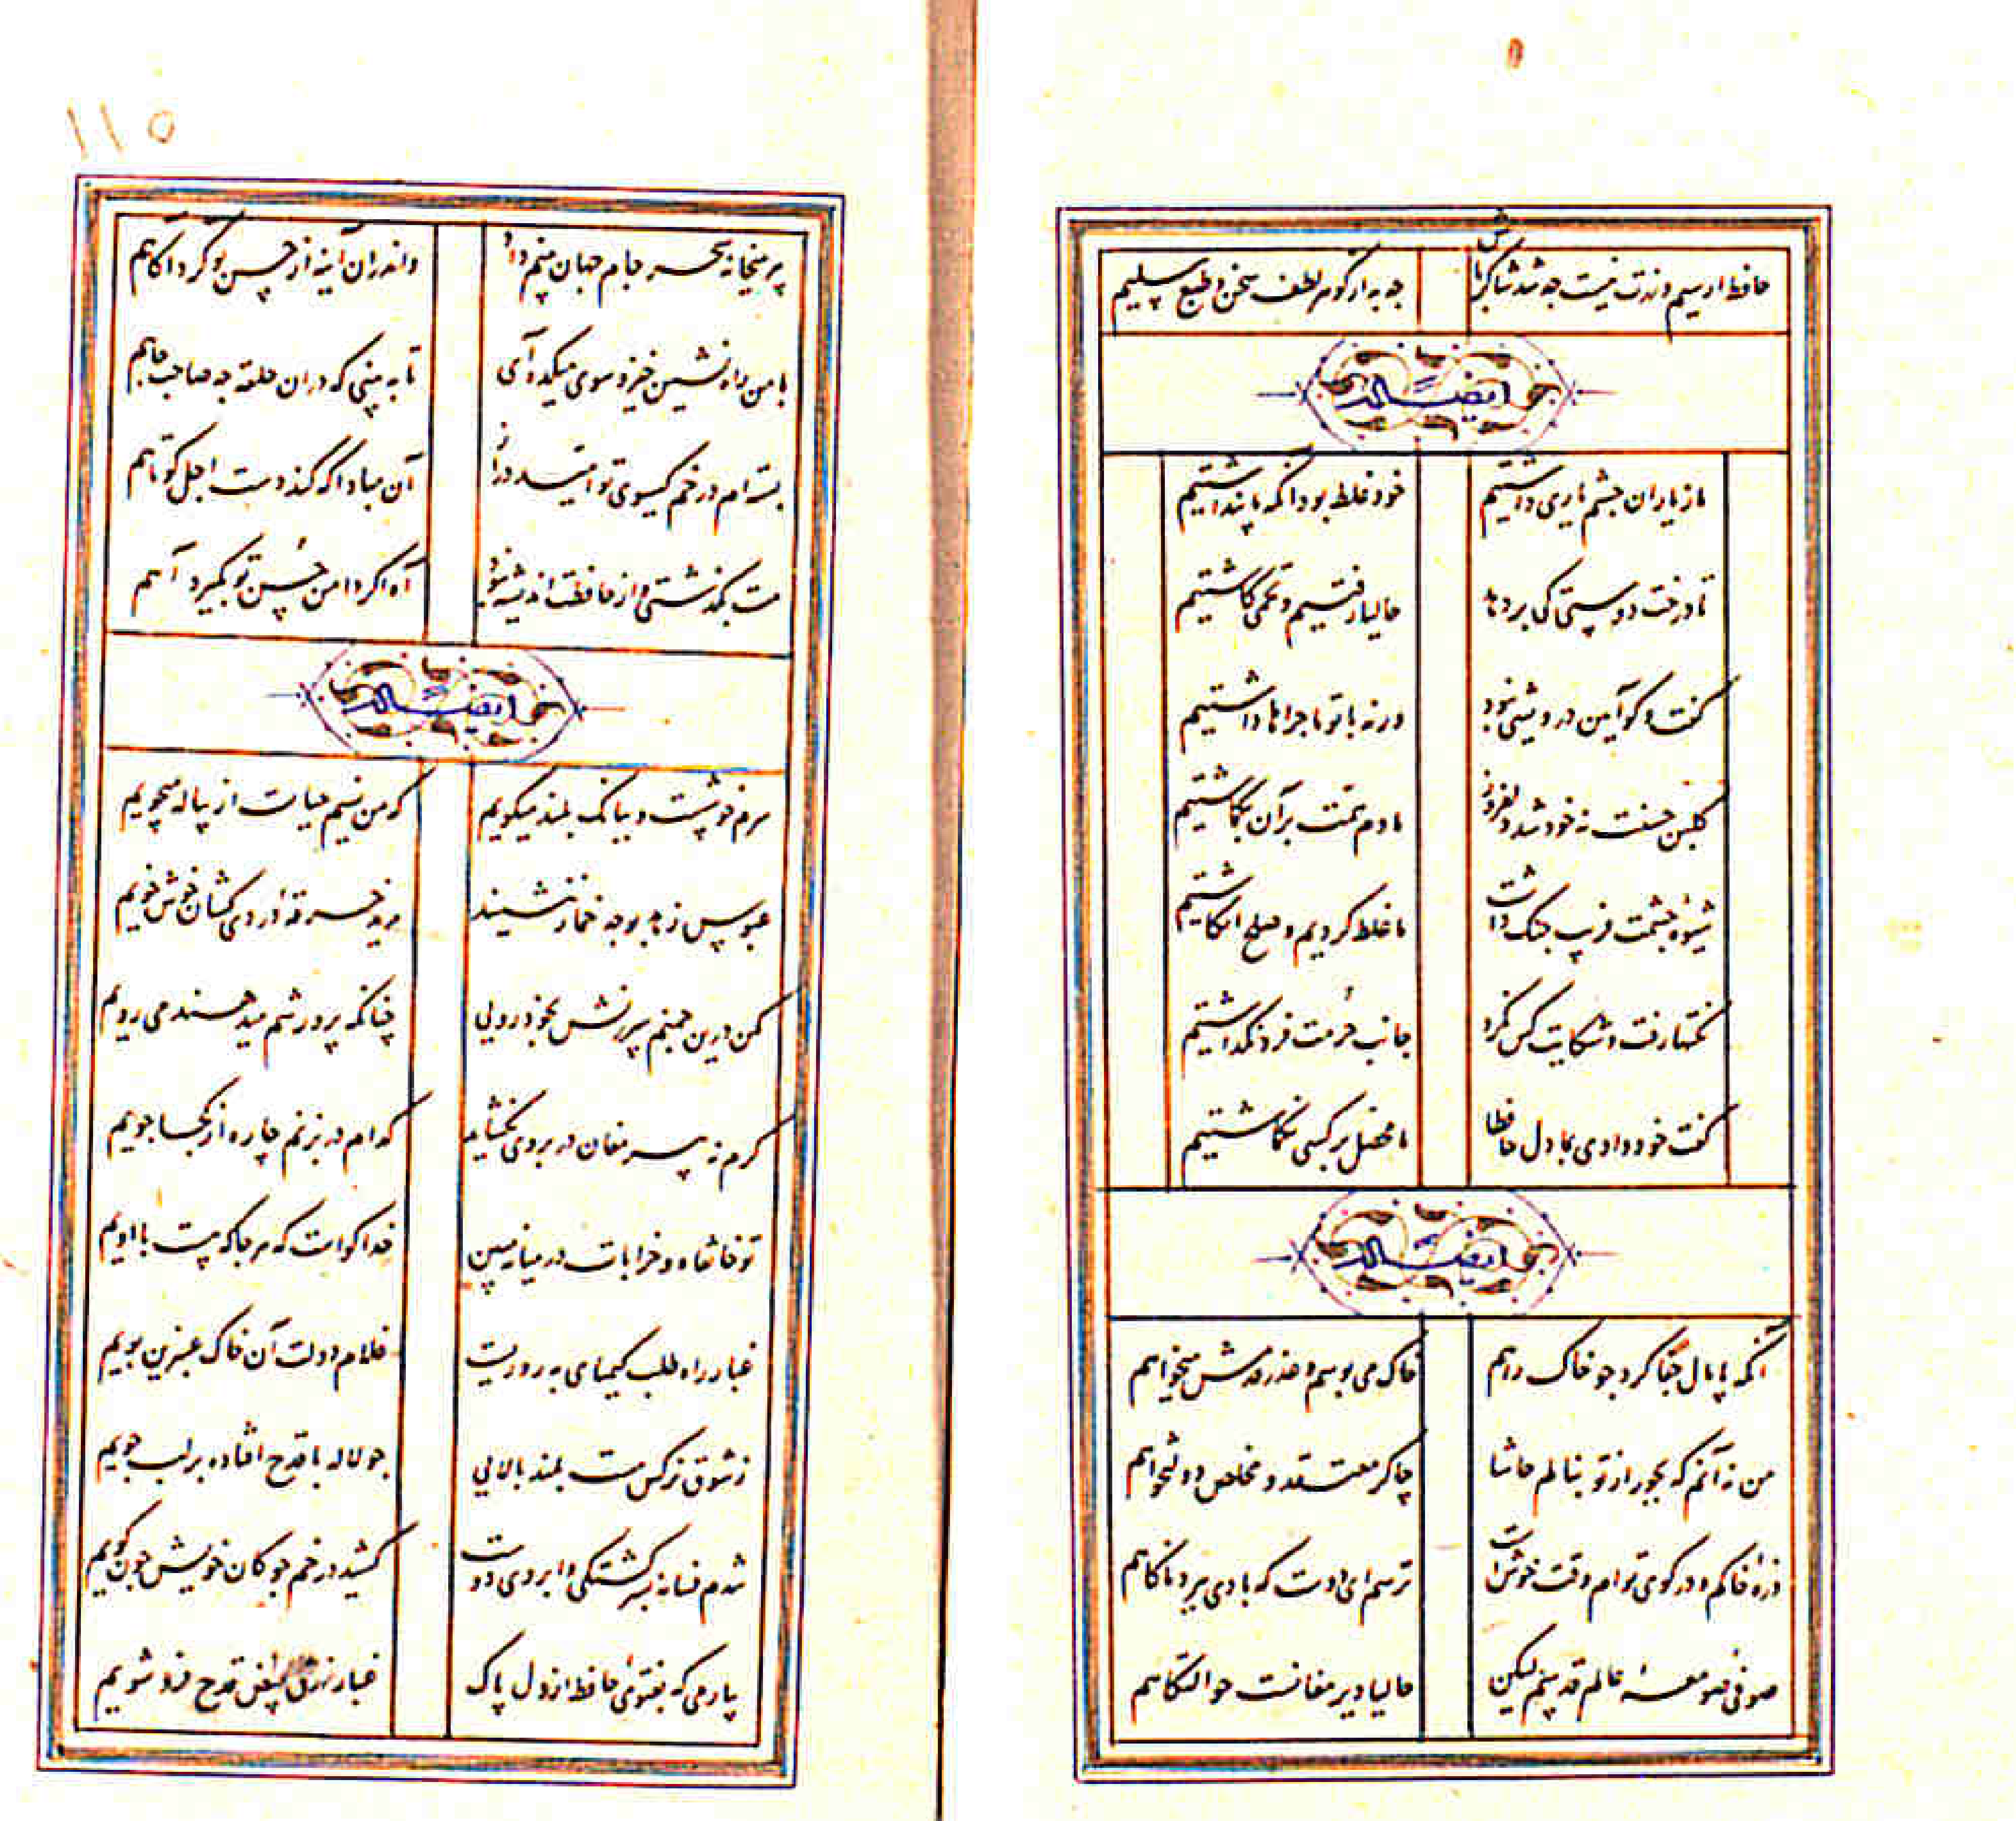 حافظ ار سیم و زرت نیست چه شد شاکر باش
چه به از گوهر لطف سخن و طبع سلیم
ایضاً له
ما ز یاران چشم یاری داشتیم
خود غلط بود آنکه ما پنداشتیم
تا درخت دوستی کی بر دهد
حالیا رفتیم و تخمی کاشتیم
گفت و گو آیین درویشی نبود
ورنه با تو ماجراها داشتیم
گلبن حسنت نه خود شد دلفروز
ما دم همت بر آن بگماشتیم
شیوه چشمت فریب جنگ داشت
ما غلط کردیم و صلح انگاشتیم
نکتها رفت و شکایت کس نکرد
جانب حُرمت فرو نگذاشتیم
گفت خود دادی بما دل حافظا
ما محصل بر کسی نگماشتیم
ایضاً له
آنکه پامال جفا کرد چو خاک راهم
خاک می بوسم و عذر قدمش میخواهم
من نه آنم که بجور از تو بنالم حاشا
چاکر معتقد و مخلص دولتخواهم
ذرّه خاکم و در کوی توام وقت خوش است
ترسم ای دوست که بادی ببرد ناگاهم
صوفی صومعهٔ عالم قدسیم لیکن
حالیا دیر مغانست حوالتگاهم
۱۱۵
پیر میخانه سحر جام جهان بینم داد
واندران آینه از حسن تو کرد آگاهم
با من راه نشین خیز و سوی میکده آی
تا به بینی که دران حلقه چه صاحب جاهم
بسته‌ام در خم گیسوی تو امید دراز
آن مبادا که کند دست اجل کوتاهم
مست بگذشتی و از حافظت اندیشه نبود
آه اگر دامن حُسن تو بگیرد آهم
ایضاً له
سرم خوشست و ببانگ بلند میگویم
که من نسیم حیات از پیاله میجویم
عبوس زهد بوجه خمار ننشیند
مرید خرقهٔ دردی کشان خوش خویم
مکن درین چمنم سرزنش بخود رویی
چنانکه پرورشم میدهند می رویم
گرم نه پیر مغان در بروی بگشاید
کدام در بزنم چاره از کجا جویم
تو خانقاه و خرابات در میانه مبین
خدا گواست که هر جا که هست با اویم
غبار راه طلب کیمیای به روزیست
غلام دولت آن خاک عنبرین بویم
ز شوق نرگس مست بلند بالایی
چو لاله با قدح افتاده بر لب جویم
شدم فسانه بسرگشتگی و ابروی دوست
کشید در خم چوگان خویش چون گویم
بیار می که بفتوی حافظ از دل پاک
غبار زرق بفیض قدح فرو شویم